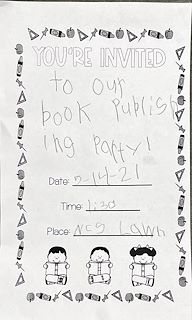 YOU'RE INVITED
to our
book Publish
ing Party!
Date: 5-14-21
Time: 1:30
Place: NCS Lawn